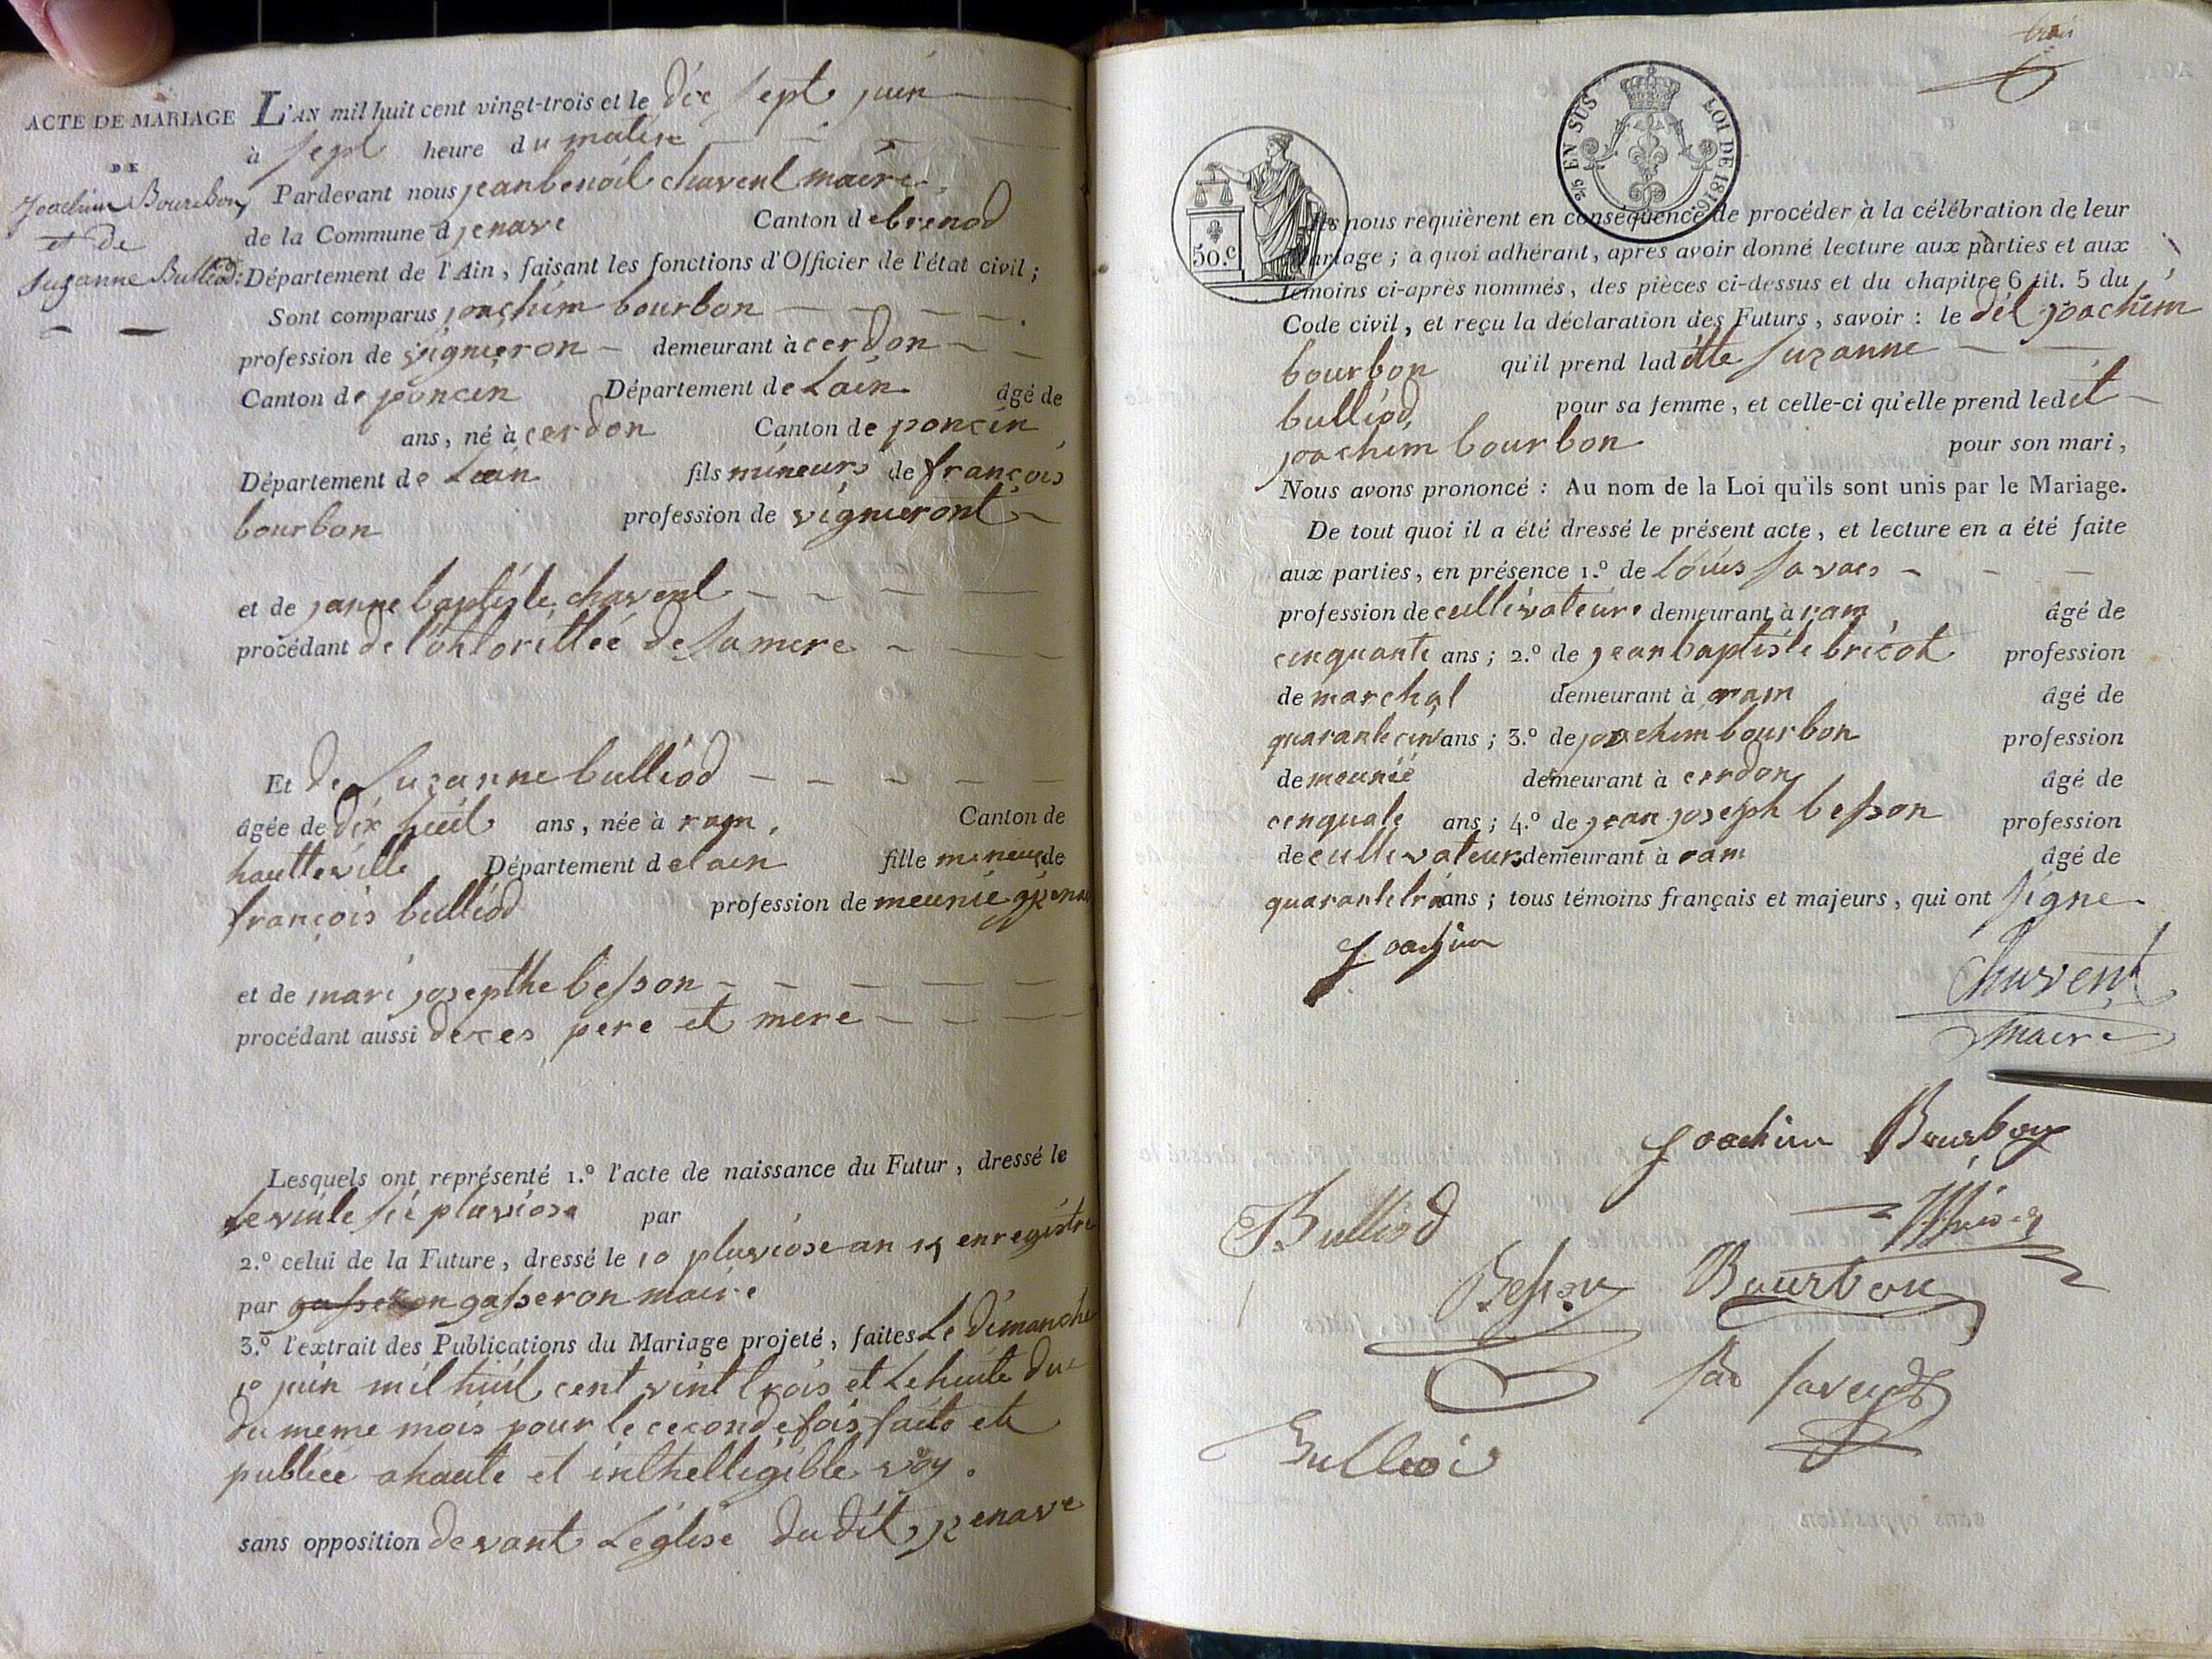 ACTE DE MARIAGE
DE
Joachim Bourbon
et de
Suzanne Bulliod:
L'AN mil huit cent vingt-trois et le dix sept juin
à sept heure du matin
Pardevant nous jean benoit chavent maire
de la Commune d jenave Canton de brenod
Département de l'Ain, faisant les fonctions d'Officier de l'état civil;
Sont comparus joachim bourbon
profession de vignieron demeurant à cerdon
Canton de poncin Département de Lain âgé de
ans, né à cerdon Canton de poncin
Département de Lain fils mineurs de françois
bourbon profession de vignieront
et de janne baptiste chavent
procédant de l'ohtorittée de sa mere
Et de Suzanne bulliod
âgée de dix huit ans, née à ram, Canton de
hautteville Département de lain fille mineur de
françois bulliod profession de meunie
et de mari josepthe besson
procédant aussi de ces pere et mere
Lesquels ont représenté 1.° l'acte de naissance du Futur, dressé le
Le vinte pluviose par
2.° celui de la Future, dressé le 10 pluviose an enregistre
par gasseron maire
3.° l'extrait des Publications du Mariage projeté, faites Le dimanche
10 juin mil huit cent vint trois et Le huite du
du meme mois pour le ceconde fois faite et
publiée a haute et inthelligible voy.
sans opposition devant L'eglise du dit jenave
trois
2/5 EN SUS LOI DE 1816
50.c
Ils nous requièrent en conséquence de procéder à la célébration de leur
Mariage; à quoi adhérant, après avoir donné lecture aux parties et aux
témoins ci-après nommés, des pièces ci-dessus et du chapitre 6 tit. 5 du
Code civil, et reçu la déclaration des Futurs, savoir : le dit joachim
bourbon qu'il prend laditte Suzanne
bulliod, pour sa femme, et celle-ci qu'elle prend ledit
joachim bourbon pour son mari,
Nous avons prononcé : Au nom de la Loi qu'ils sont unis par le Mariage.
De tout quoi il a été dressé le présent acte, et lecture en a été faite
aux parties, en présence 1.° de Louis
profession de cultivateure demeurant à ram, âgé de
cinquante ans; 2.° de jean baptiste bricot profession
de marchal demeurant à ram âgé de
quarante cin ans; 3.° de joachim bourbon profession
de meunié demeurant à cerdon âgé de
cenquate ans; 4.° de jean joseph besson profession
de cultivateurs demeurant à ram âgé de
quarante troi ans; tous témoins français et majeurs, qui ont signe
Joachim
Chavent
maire
Joachim Bourbon
Bulliod
Besson Bourbon